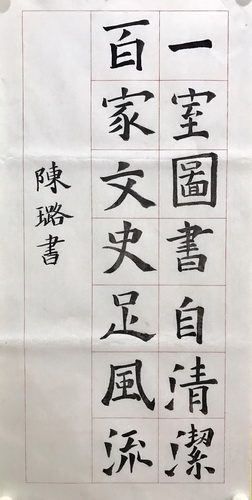 一室圖書自清潔
百家文史足風流
陳璐書